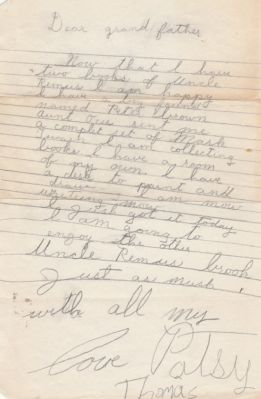 Dear grand father
Now that I have
two books of Uncle
Remus I am happy
I have a boy friend
named Peter Brown
aunt sent me
a complet set of Mark
I am collecting
books I have a room
of my own. I have
a desk to paint and
draw I am now
writing now
I got it today
I am going to
enjoy the
Uncle Remus brook
Just as much
with all my
love Patsy
Thomas